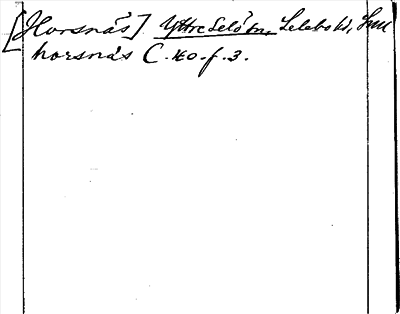 [Horsnäs] Yttre Selö sn, Selebo hd, Sml
horsnäs C.160.f.3.